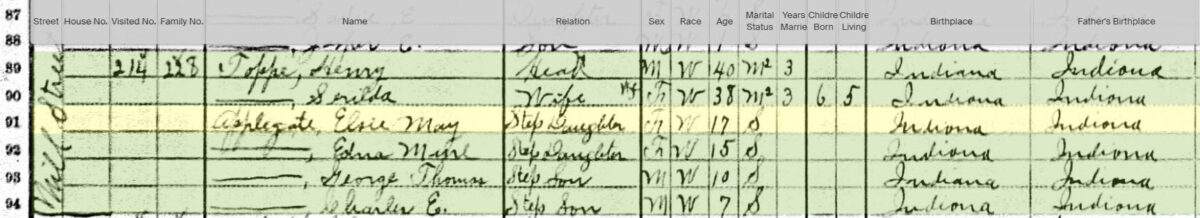 Street House No. Visited No. Family No. Name Relation Sex Race Age Marital Status Years Marrie Childre Born Childre Living Birthplace Father's Birthplace
87
88 E. Son M W 1 S Indiana Indiana
89 214 228 Toppe, Henry Head M W 40 M² 3 Indiana Indiana
90 ———, Serilda Wife F W 38 M² 3 6 5 Indiana Indiana
91 Applegate, Elsie May Step Daughter F W 17 S Indiana Indiana
92 ———, Edna Step Daughter F W 15 S Indiana Indiana
93 ———, George Thomas Step Son M W 10 S Indiana Indiana
94 ———, Charles E. Step Son M W 7 S Indiana Indiana
Street